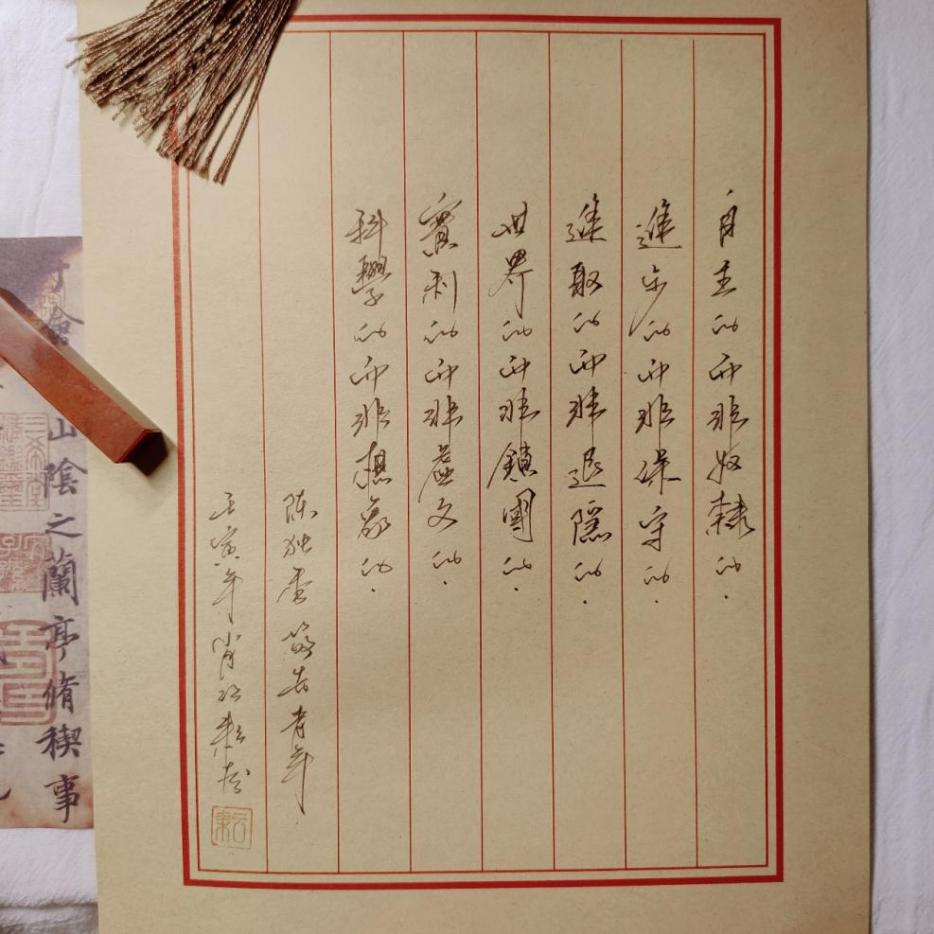 自主的而非奴隸的.
進步的而非保守的.
進取的而非退隱的.
世界的而非鎖國的.
實利的而非虛文的.
科學的而非想象的.
陈独秀敬告青年
壬寅年肖
山陰之蘭亭脩稧事